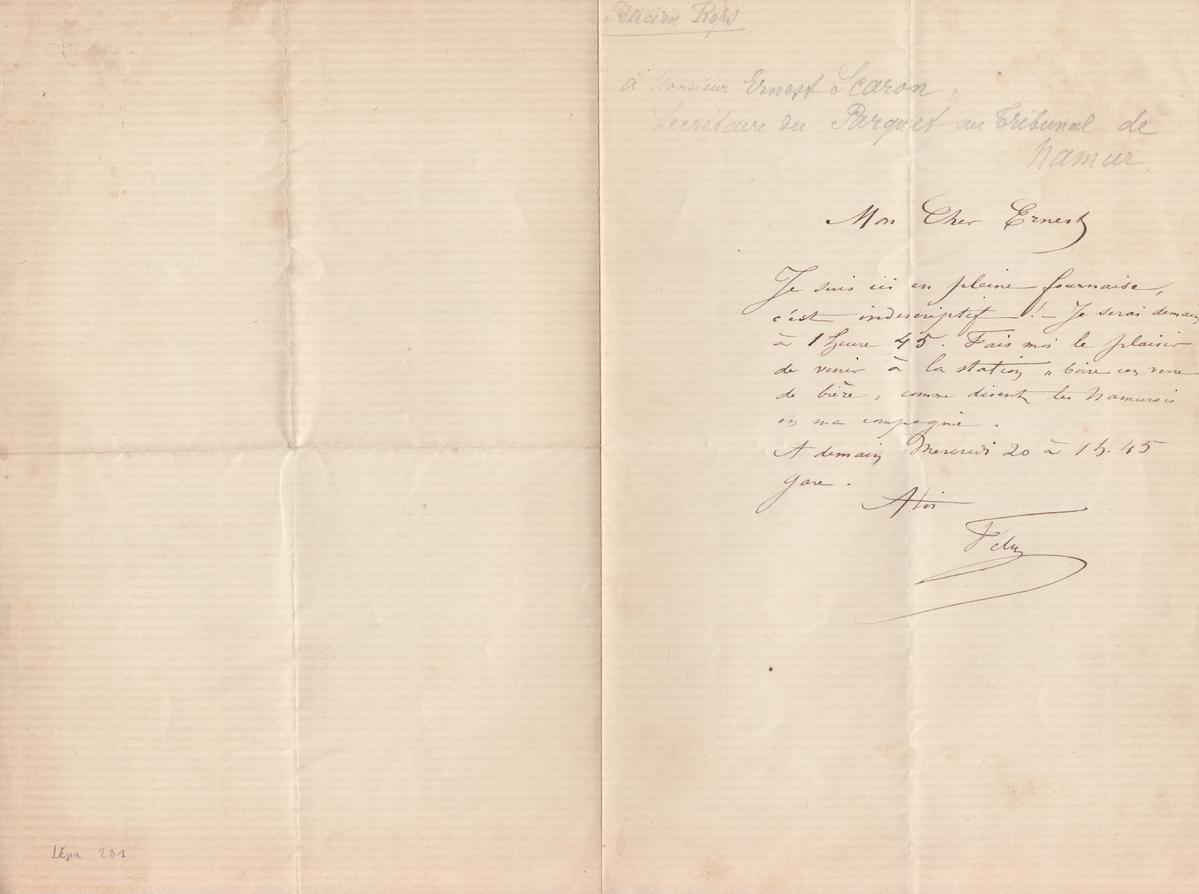 Félicien Rops
à Monsieur Ernest Scaron,
Secrétaire du Parquet au Tribunal de
Namur
Mon Cher Ernest
Je suis ici en pleine fournaise,
c'est indescriptif ! – Je serai demain
à 1 heure 45. Fais moi le plaisir
de venir à la station „ boire un verre
de bière, comme disent les Namurois
en ma compagnie.
A demain Mercredi 20 à 1 h. 45
gare.
A toi
Fély
LEpr 231